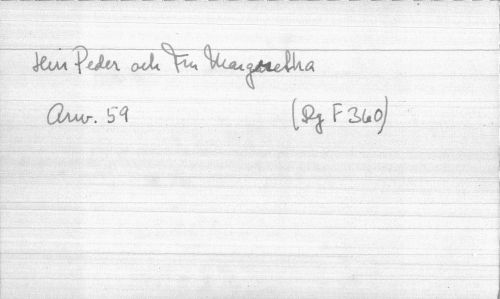 Herr Peder och Fru Margaretha
Arw. 59 (Rg F 360)